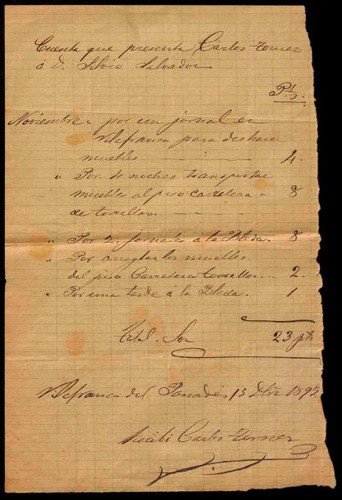 Cuenta que presenta Carlos Torner
á D. Silvio Salvador
Pts.
Noviembre " por un jornal en
Vilafranca para deshacer
muebles 4
" Por noches transportar
muebles al piso carretera
de torellas. 8
" Por 2 jornales a la 8
" Por arreglar los muebles
del piso Carretera torellas 2
" Por una tarde a la 1
Total Son 23 pts
Vilafranca del Panadés 15 Dbre 1893
Recibí Carlos Torner